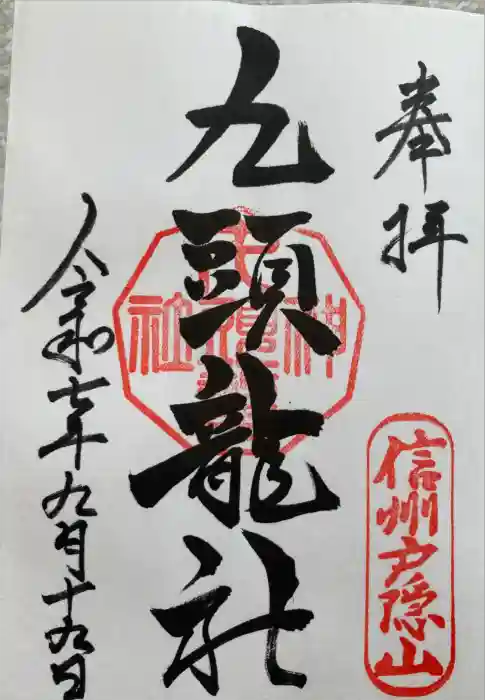 奉拝
信州戸隠山
九頭龍社
戸隠神社
令和七年九月十九日